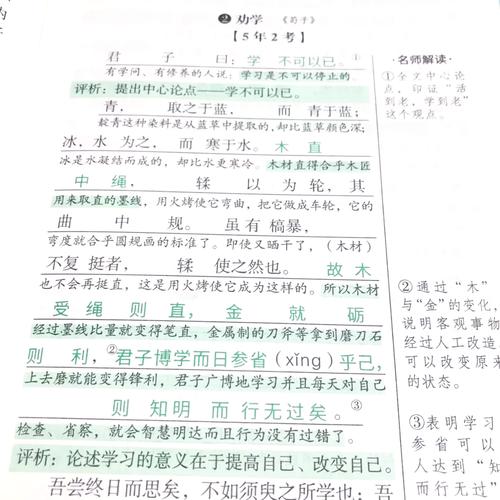 为
② 劝学 《荀子》
【5年2考】
君 子 曰：学 不可以已。①
有学问、有修养的人说：学习是不可以停止的。
评析：提出中心论点——学不可以已。
青， 取之于蓝， 而 青于蓝；
靛青这种染料是从蓝草中提取的，却比蓝草颜色深；
冰，水 为之， 而 寒于水。 木 直
冰是水凝结而成的，却比水更寒冷。木材直得合乎木匠
中 绳， 𫐓 以 为 轮， 其
用来取直的墨线，用火烤使它弯曲，把它做成车轮，它的
曲 中 规。 虽有 槁暴，
弯度就合乎圆规画的标准了。即使又晒干了，（木材）
不复 挺者， 𫐓 使之然也。 故 木
也不会再挺直，这是用火烤使它成为这样的。所以木材
受 绳 则 直， 金 就 砺
经过墨线比量就变得笔直，金属制的刀斧等拿到磨刀石
则 利，②君子博学而日参省（xǐng）乎己，
上去磨就能变得锋利，君子广博地学习并且每天对自己
则 知明 而 行无过矣。③
检查、省察，就会智慧明达而且行为没有过错了。
评析：论述学习的意义在于提高自己、改变自己。
吾尝终日而思矣，不如须臾之所学也；吾
名师解读
①全文中心论
点，印证“活
到老，学到老”
这个观点。
②通过“木”
与“金”的变化，
说明客观事物
经过人工改造，
可以改变原来
的状态。
③表明学习
参省可以
人达到“知
而行无过”